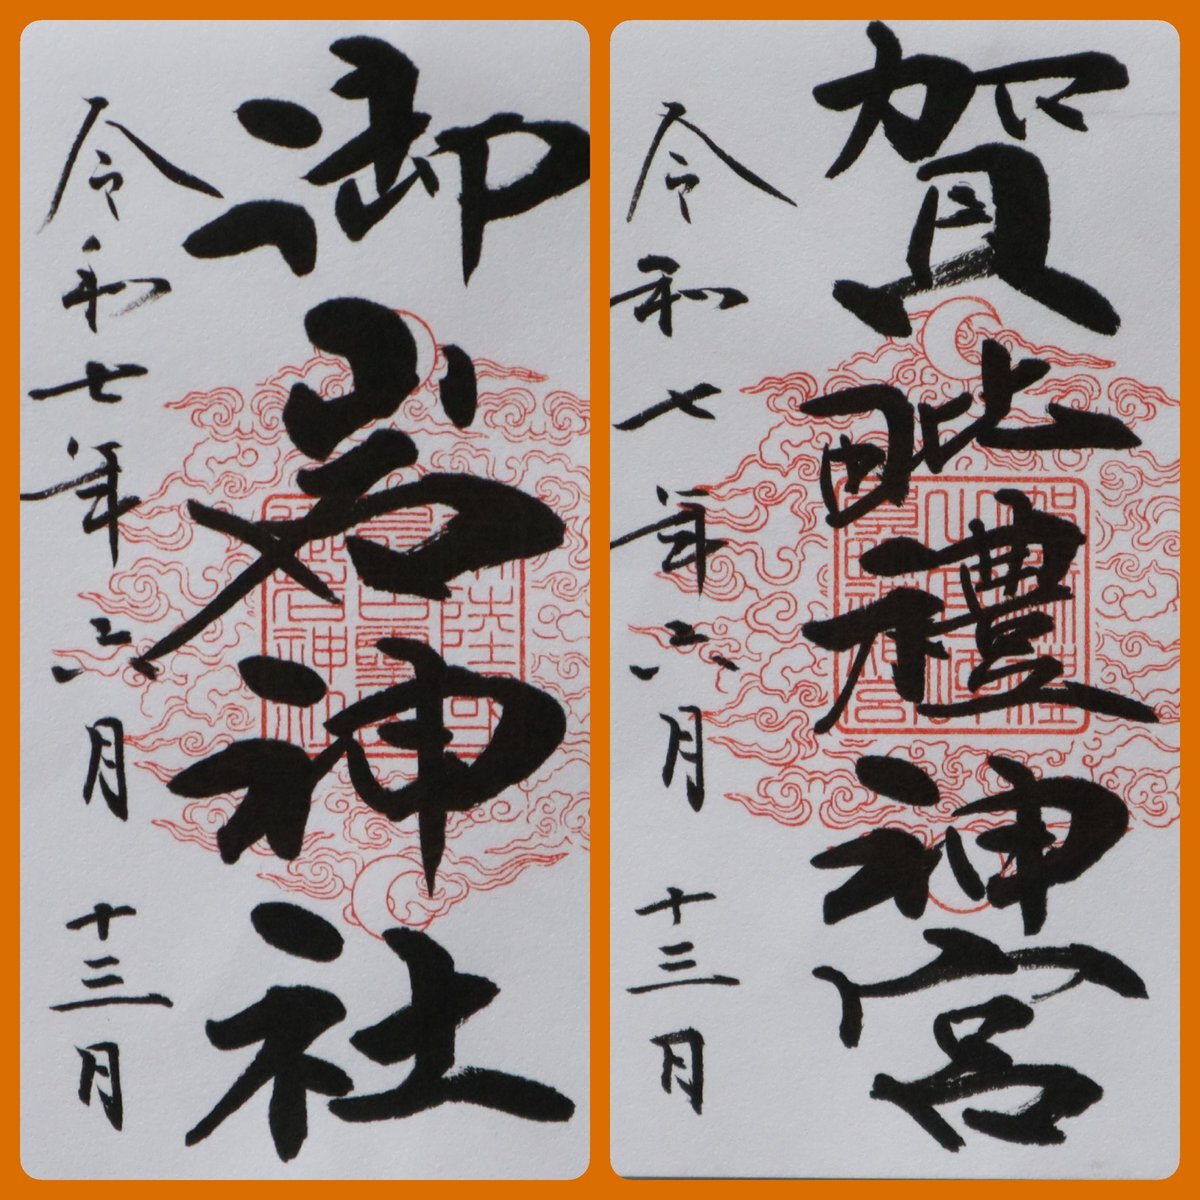 御岩神社
令和七年六月十三日
賀毗禮神宮
令和七年六月十三日